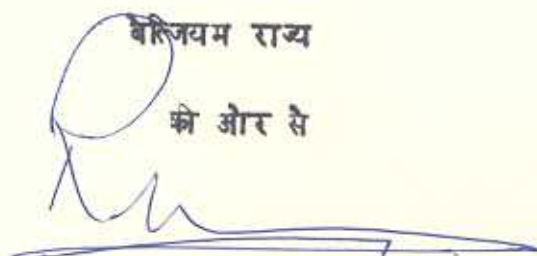 बेल्जियम राज्य
की ओर से